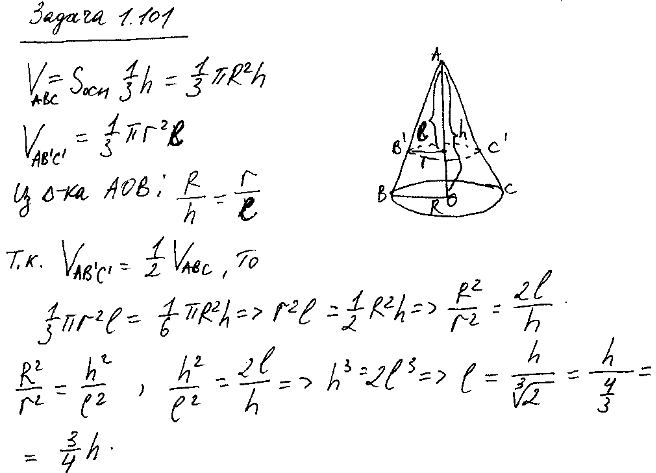 Задача 1.101
V_ABC = S_осн 1/3 h = 1/3 πR²h
V_AB'C' = 1/3 πr²l
Из Δ-ка AOB: R/h = r/l
Т.к. V_AB'C' = 1/2 V_ABC, то
1/3 πr²l = 1/6 πR²h => r²l = 1/2 R²h => R²/r² = 2l/h.
R²/r² = h²/l², h²/l² = 2l/h => h³ = 2l³ => l = h/∛2 = h/(4/3) =
= 3/4 h.
A
l h
B' r C'
B R O C